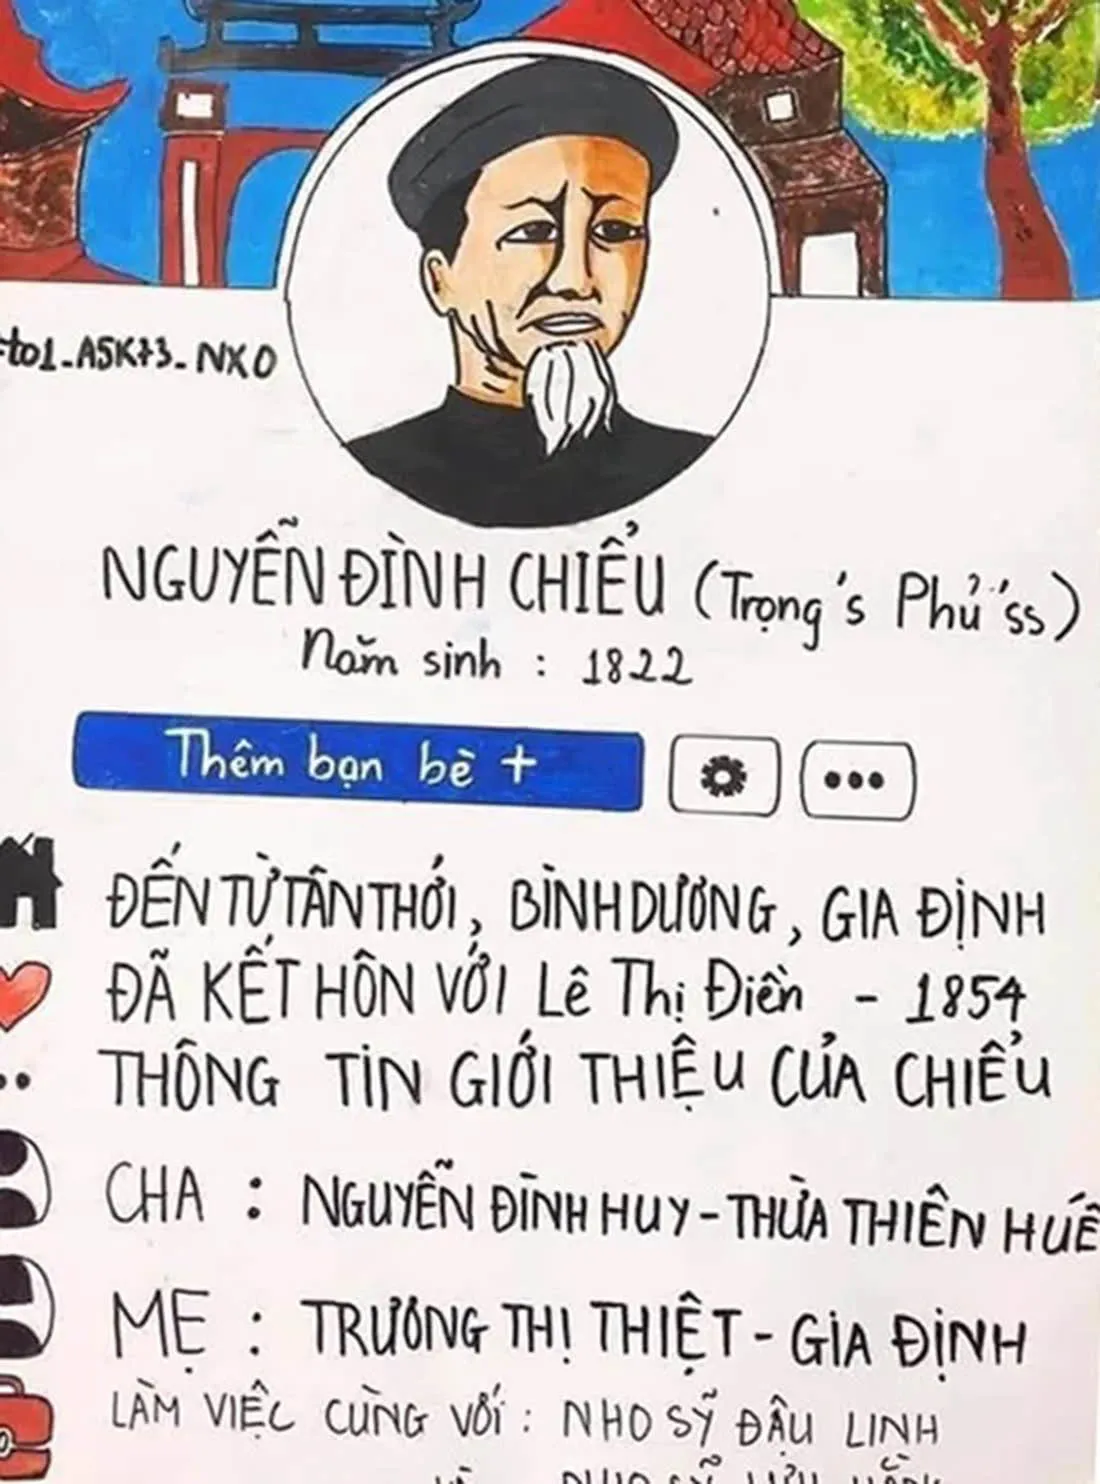 to1_A5K73_NXO
NGUYỄN ĐÌNH CHIỂU (Trọng's Phủ'ss)
Năm sinh : 1822
Thêm bạn bè +
ĐẾN TỪ TÂN THỚI, BÌNH DƯƠNG, GIA ĐỊNH
ĐÃ KẾT HÔN VỚI Lê Thị Điền - 1854
THÔNG TIN GIỚI THIỆU CỦA CHIỂU
CHA : NGUYỄN ĐÌNH HUY - THỪA THIÊN HUẾ
MẸ : TRƯƠNG THỊ THIỆT - GIA ĐỊNH
LÀM VIỆC CÙNG VỚI : NHO SỸ ĐẬU LINH